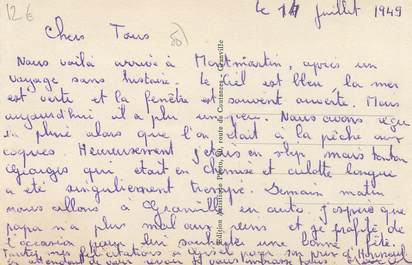 12€
le 14 juillet 1949
Chers Tous
Nous voilà arrivé à Montmartin, après un
voyage sans histoire. Le ciel est bleu, la mer
est verte et la fenêtre est souvent ouverte. Mais
aujourd'hui il a plu un peu. Nous avons reçu
la pluie alors que l'on était à la pêche aux
coques Heureusement j'étais en slip mais tonton
Georges qui était en chemise et culotte longue
a été singulièrement trempé. Demain matin
nous allons à Granville en auto. j'espère que
papa n'a plus mal aux reins et je profite de
l'occasion pour lui souhaiter une bonne fête.
Toutes mes félicitations à pour son prix d'Honneur
en attendant de vous revoir je vous
Edition route de Coutances - Granville